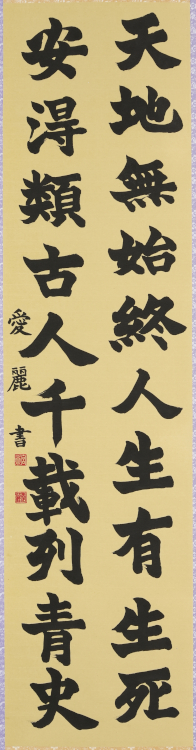 天地無始終人生有生死
安淂類古人千載列青史
愛麗書